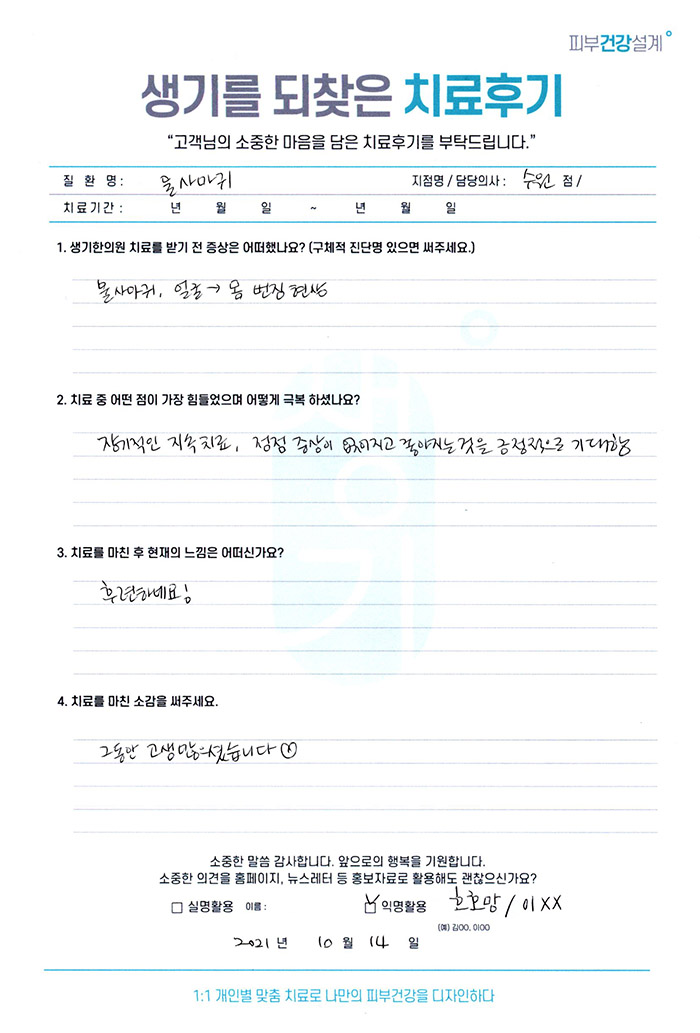 피부건강설계
생기를 되찾은 치료후기
“고객님의 소중한 마음을 담은 치료후기를 부탁드립니다.”
질 환 명 : 물사마귀 지점명 / 담당의사 : 수원 점 /
치료기간 : 년 월 일 ~ 년 월 일
1. 생기한의원 치료를 받기 전 증상은 어떠했나요? (구체적 진단명 있으면 써주세요.)
물사마귀, 얼굴→ 몸 번짐 현상
2. 치료 중 어떤 점이 가장 힘들었으며 어떻게 극복 하셨나요?
장기적인 지속치료, 점점 증상이 없어지고 좋아지는것을 긍정적으로 기대함
3. 치료를 마친 후 현재의 느낌은 어떠신가요?
후련하네요!
4. 치료를 마친 소감을 써주세요.
그동안 고생많으셨습니다
생기
소중한 말씀 감사합니다. 앞으로의 행복을 기원합니다.
소중한 의견을 홈페이지, 뉴스레터 등 홍보자료로 활용해도 괜찮으신가요?
실명활용 이름 : 익명활용 호호맘 / 이XX
(예) 김OO, 이OO
2021 년 10 월 14 일
1:1 개인별 맞춤 치료로 나만의 피부건강을 디자인하다